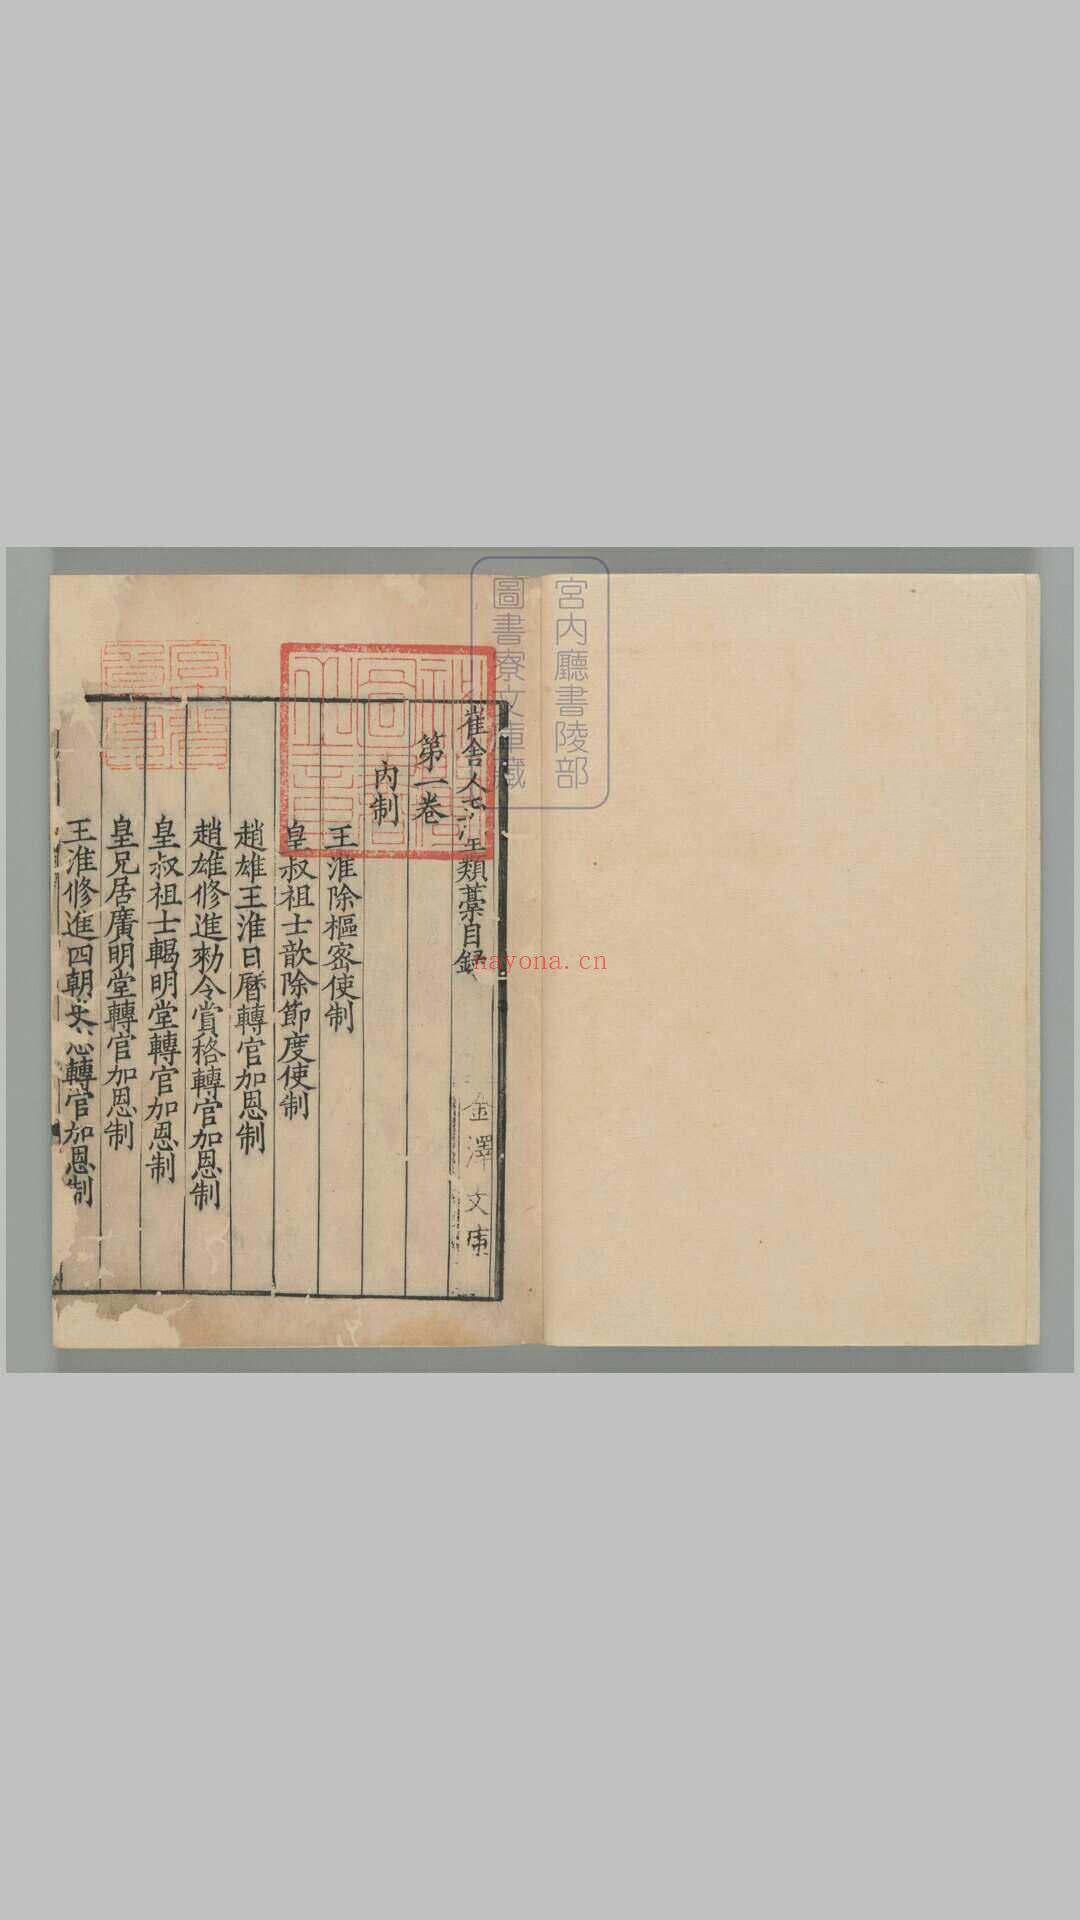 宮内廳書陵部
圖書寮文庫藏
崔舍人玉堂類藁目録
金澤文庫
第一卷
内制
王淮除樞密使制
皇叔祖士歆除節度使制
趙雄王淮日曆轉官加恩制
趙雄修進勑令賞格轉官加恩制
皇叔祖士輵明堂轉官加恩制
皇兄居廣明堂轉官加恩制
王淮修進四朝史志轉官加恩制
nayona.cn